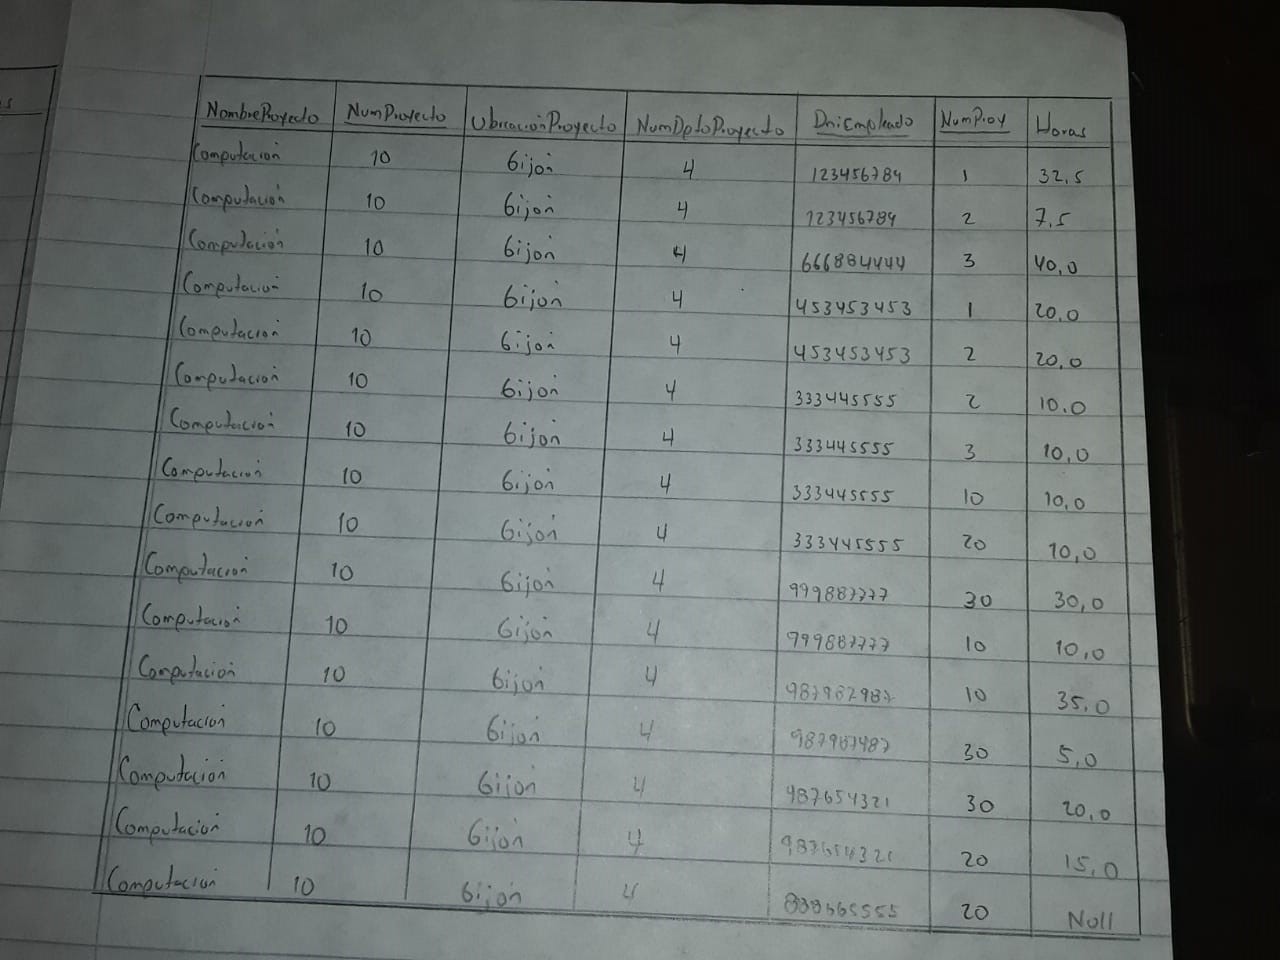 NombreProyecto NumProyecto UbicaciónProyecto NumDptoProyecto DniEmpleado NumProy Horas
Computación 10 Gijón 4 123456789 1 32,5
Computación 10 Gijón 4 123456789 2 7,5
Computación 10 Gijón 4 666884444 3 40,0
Computación 10 Gijón 4 453453453 1 20,0
Computación 10 Gijón 4 453453453 2 20,0
Computación 10 Gijón 4 333445555 2 10,0
Computación 10 Gijón 4 333445555 3 10,0
Computación 10 Gijón 4 333445555 10 10,0
Computación 10 Gijón 4 333445555 20 10,0
Computación 10 Gijón 4 999887777 30 30,0
Computación 10 Gijón 4 999887777 10 10,0
Computación 10 Gijón 4 987987987 10 35,0
Computación 10 Gijón 4 987987987 30 5,0
Computación 10 Gijón 4 987654321 30 20,0
Computación 10 Gijón 4 987654321 20 15,0
Computación 10 Gijón 4 888665555 20 Null